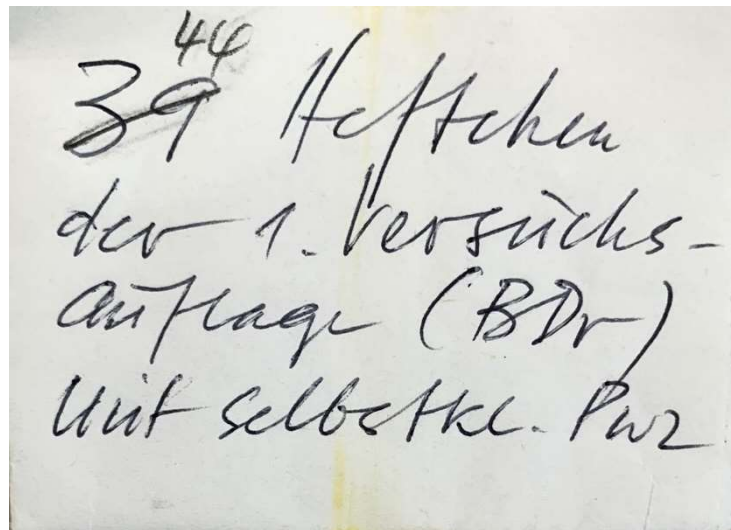 44
39 Heftchen
der 1. Versuchs-
auflage (BDr)
mit selbstkl. Pwz